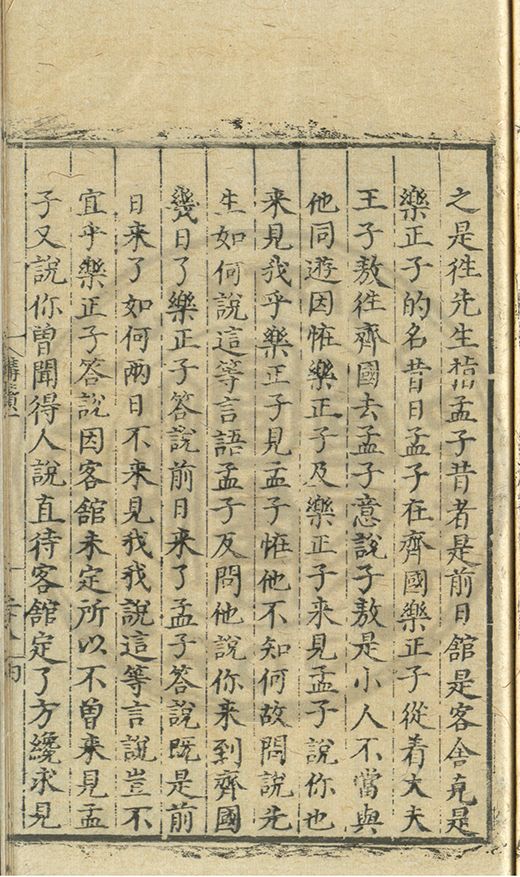 之是徃先生指孟子昔者是前日舘是客舍克是
樂正子的名昔日孟子在齊國樂正子從着大夫
王子敖徃齊國去孟子意說子敖是小人不當與
他同遊因恠樂正子及樂正子来見孟子說你也
来見我乎樂正子見孟子恠他不知何故問說先
生如何說這等言語孟子反問他說你来到齊國
幾日了樂正子答說前日来了孟子答說既是前
日来了如何兩日不来見我我說這等言說豈不
宜乎樂正子答說因客舘未定所以不曾来見孟
子又說你曾聞得人說直待客舘定了方纔求見